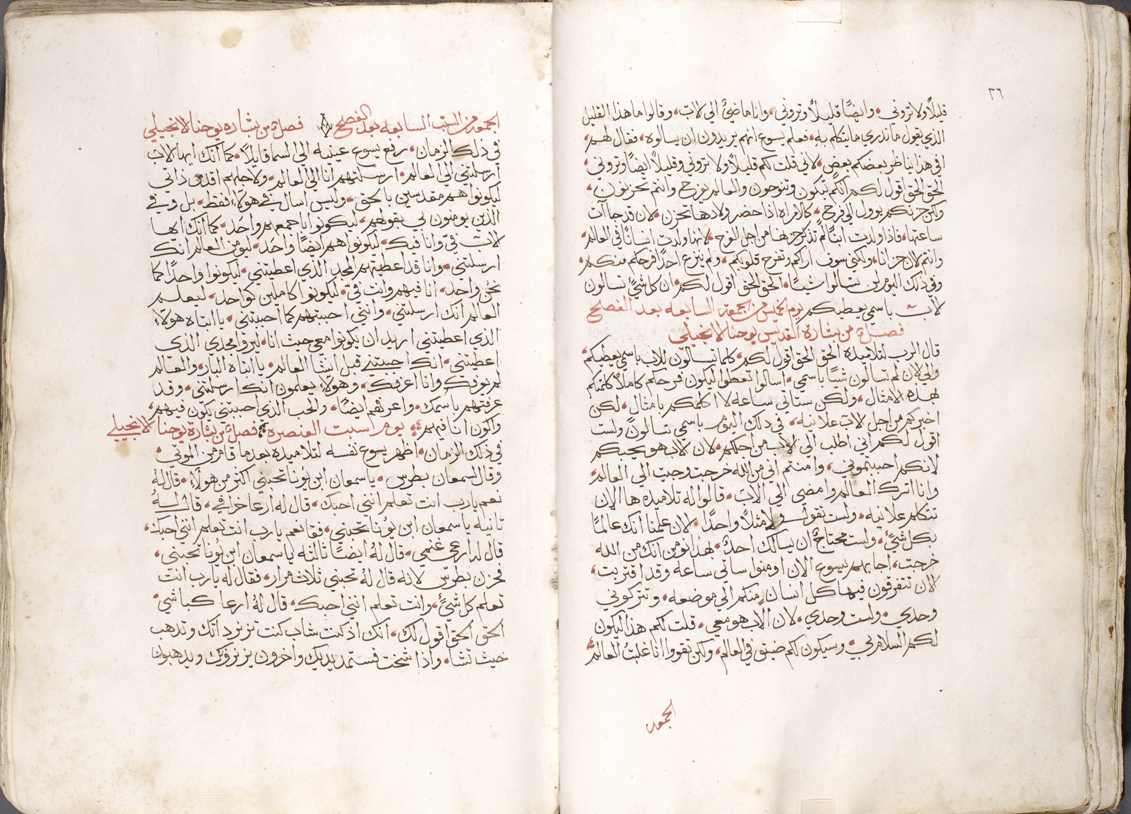 ٢٦
قليلاً ولا تروني، وايضًا قليلاً وتروني، وانا ماضئ الى لاب، وقالوا ما هذا القليل
الذي يقول ما ندري ما يتكلم به، فعلم يسوع انهم يريدون ان يسالوه، فقال لهم،
افي هذا يناظر بعضكم بعضٍ، لاني قلت لكم قليلاً ولا تروني وقليلاً ايضًا وتروني،
الحق الحق اقول لكم انكم تبكون وتنوحون والعالم يفرح وانتم تحزنون،
ولكن حزنكم يوول الى فرح، كالامراه اذا حضر ولادها تحزن، لان قد جات
ساعتها، فاذا ولدت ابنًا لم تذكر حزنها من اجل الفرح، لانها ولدت انسانًا في العالم،
وانتم لان حزانا، ولكني سوف اراكم وتفرح قلوبكم، ولم ينزع احدًا فرحكم منكم،
وفي ذلك اليوم لن تسالوا شيًا، الحق الحق اقول لكم، ان كل شي تسالون
لاب باسمي يعطيكم يوم الخميس من الجمعه السابعه بعد الفصح
فصل من بشارة القديس يوحنا الانجيلي
قال الرب لتلاميذه الحق الحق اقول لكم، كلما تسالون للاب باسمي يعطيكم،
والى الان لم تسالون شيًا باسمي، اسالوا تعطوا ليكون فرحكم كاملاً كلمتكم
بهذه الامثال، ولكن ستاتي ساعه لا اكلمكم بامثال، لكن
اخبركم من اجل لاب علانيه، في ذلك اليوم باسمي تسالون، ولست
اقول لكم اني اطلب الى الاب من اجلكم، لان لاب هو يحبكم
لانكم احببتموني، وامنتم اني من الله خرجت وجيت الى العالم،
وانا اترك العالم وامضي الى الاب، قالوا له تلاميذه ها الان
تتكلم علانيه، ولست تقول ولا مثلاً واحدًا، لان علمنا انك عالمًا
بكل شيٍ، ولست محتاج ان يسالك احد، بهذا نومن انك من الله
خرجت، اجابهم يسوع الان اومنوا ساتي ساعه وقد اقتربت،
لان تتفرقون فيها كل انسان منكم الى موضعه، وتتركوني
وحدي، ولست وحدي، لان الاب هو معي، قلت لكم هذا ليكون
لكم السلام بي، وسيكون لكم ضيق في العالم، ولكن تقووا انا غلبت العالم،
الجمعه
الجمعه من السبت السابعه بعد الفصح فصل من بشارة يوحنا الانجيلي
في ذلك الزمان، رفع يسوع عينيه الى السما قايلاً، كما انك ايها لاب
ارسلتني الى العالم، ارسلتهم انا الى العالم، ولاجلهم اقدس ذاتي
ليكونوا هم مقدسين بالحق، وليس اسال في هولاء فقط، بل وفي
الذين يومنون بي بقولهم، ليكونوا باجمعهم واحد، كما انك ايها
لاب فيّ وانا فيك، ليكونوا هم ايضًا واحد، ليومن العالم انك
ارسلتني، وانا قد اعطيتهم المجد الذي اعطيتني، ليكونوا واحدًا كما
نحن واحد، انا فيهم وانت فيّ، ليكونوا كاملين كواحد، ليعلم
العالم انك ارسلتني، وانني احببتهم كما احببتني، يا ابتاه هولاء
الذي اعطيتني اريد ان يكونوا معي حيث انا، ليروا مجدي الذي
اعطيتني، انك احببتني قبل انشا العالم، يا ابتاه البار، والعالم
لم يعرفك وانا اعرفك، وهولاء يعلمون انك ارسلتني، وقد
عرفتهم باسمك، واعرفهم ايضًا، والحب الذي حببتني يكون فيهم،
واكون انا فيهم، يوم السبت العنصره فصل من بشارة يوحنا لانجيلي
في ذلك الزمان، اظهر يسوع نفسه لتلاميذه بعد ما قام من الموتى،
وقال لسمعان بطرس، يا سمعان ابن يونا تحبني اكثر من هولاء، قال له
نعم يا رب انت تعلم انني احبك، قال له ارعا خرافي، قال له
ثانيه يا سمعان ابن يونا تحبني، فقال نعم يا رب انت تعلم انني احبك،
قال له ارعى غنمي، قال له ايضًا ثالثه يا سمعان ابن يونا تحبني،
فحزن بطرس لانه قال له تحبني ثلاث مرار، فقال له يا رب انت
تعلم كل شيٍ، وانت تعلم انني احبك، قال له ارعا كباشي،
الحق الحق اقول لك، انك اذ كنت شاب كنت تزنر ذاتك وتذهب
حيث تشا، واذا شخت فستمد يديك واخرون يزنروك ويذهبون